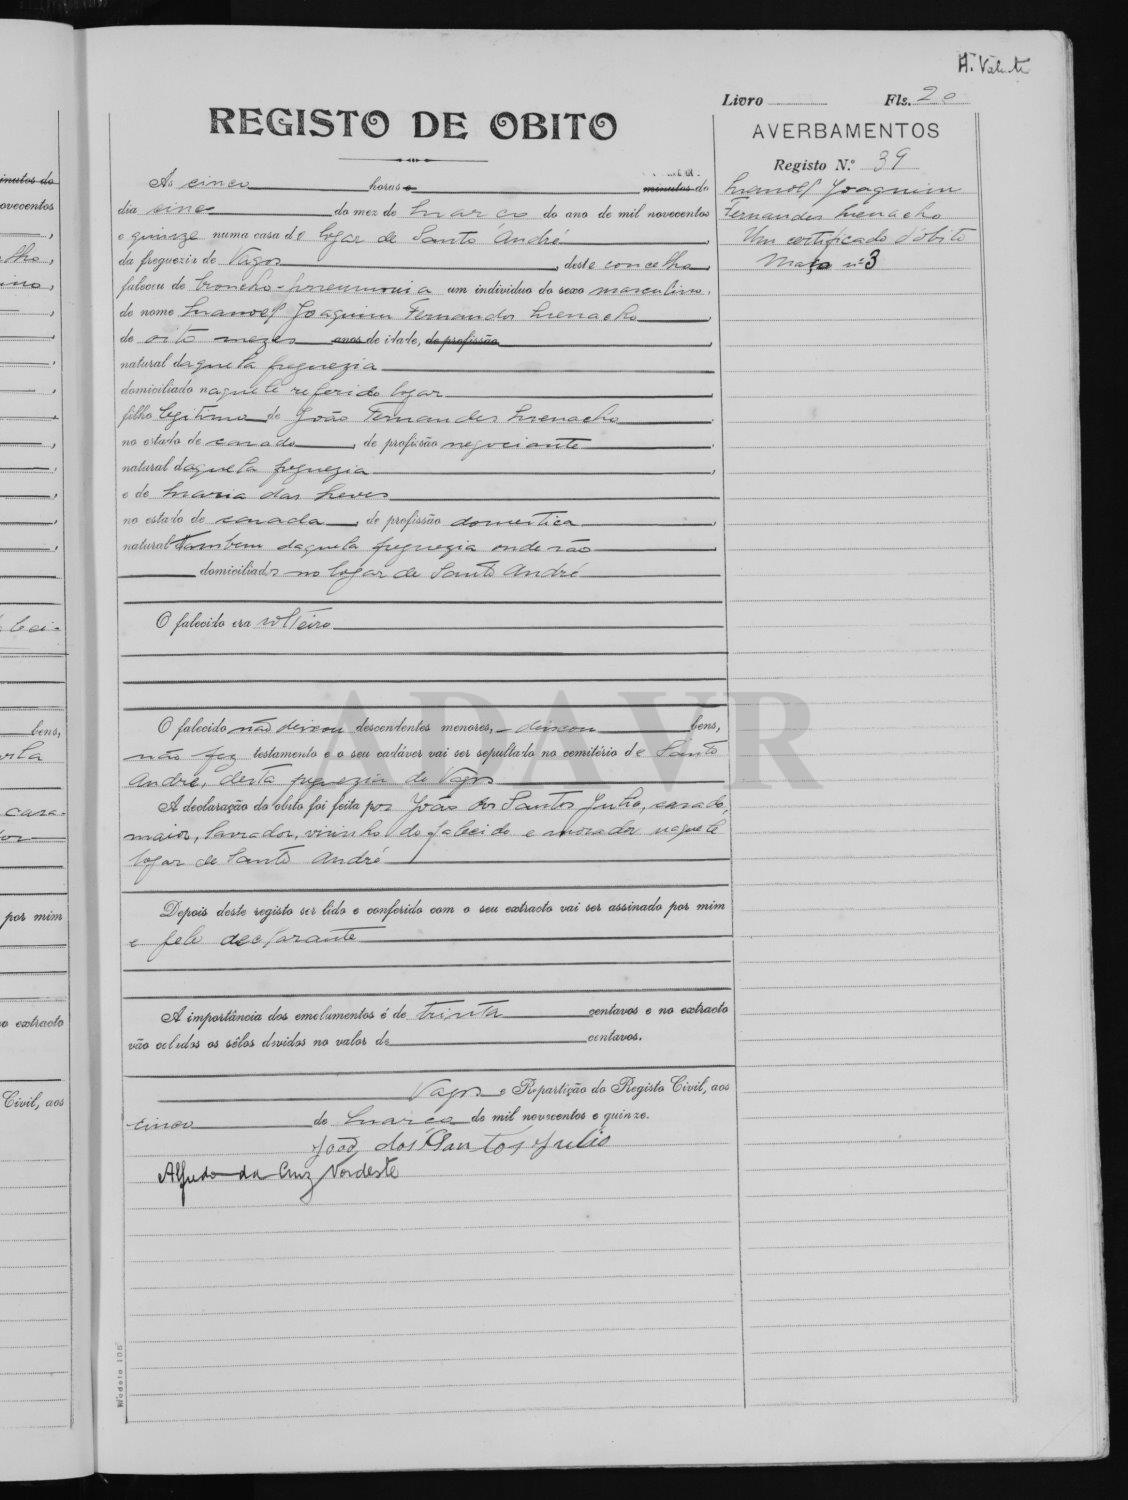 A. Valente
Livro Fls. 20
REGISTO DE OBITO
AVERBAMENTOS
Registo N.º 39
Manoel Joaquim
Fernandes Menacho
Um certificado d'óbito
Maço nº 3
Ás cinco horas e minutos do
dia cinco do mez de Março do ano de mil novecentos
e quinze numa casa do logar de Santo André,
da freguezia de Vagos, deste concelho,
faleceu de broncho-pneumonia um individuo do sexo masculino,
de nome Manoel Joaquim Fernandes Menacho,
de oito mezes anos de idade, de profissão
natural daquela freguezia
domiciliado naquele referido logar
filho legitimo de João Fernandes Menacho
no estado de casado, de profissão negociante
natural daquela freguezia,
e de Maria das Neves
no estado de casada, de profissão domestica,
natural tambem daquela freguezia onde são
domiciliados no logar de Santo André
O falecido era solteiro
O falecido não deixou descendentes menores, deixou bens,
não fez testamento e o seu cadáver vai ser sepultado no cemitério de Santo
André, desta freguezia de Vagos
A declaração do obito foi feita por João dos Santos Julio, casado,
maior, lavrador, visinho do falecido e morador naquele
logar de Santo André
Depois deste registo ser lido e conferido com o seu extracto vai ser assinado por mim
e pelo declarante
A importância dos emolumentos é de trinta centavos e no extracto
vão colados os sêlos devidos no valor de centavos.
Vagos e Repartição do Registo Civil, aos
cinco de Março de mil novecentos e quinze.
João dos Santos Julio
Alfredo da Cruz Nordeste
Modelo 105
ADAVR